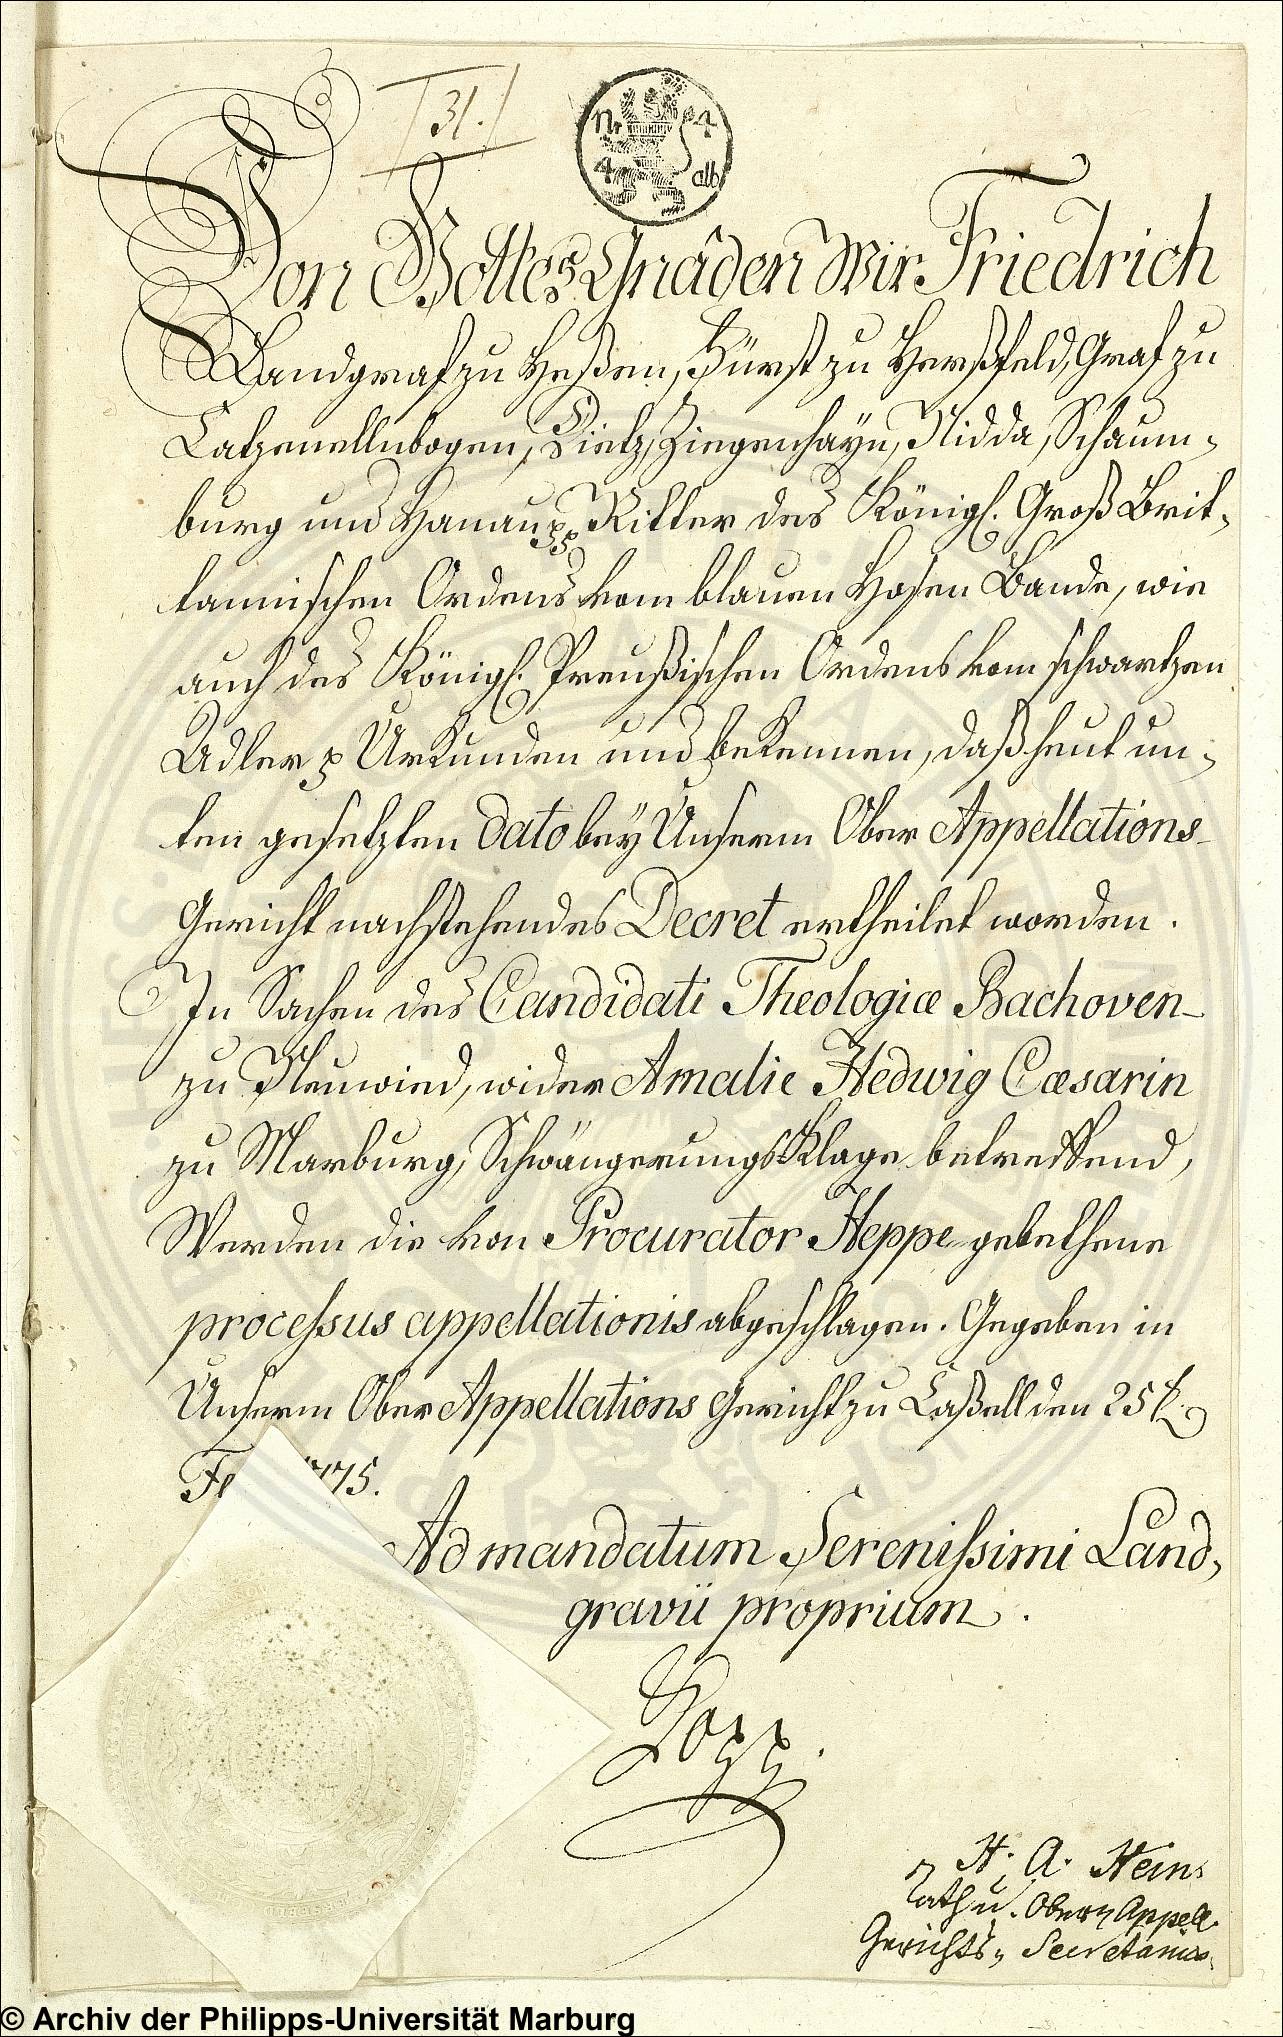 31.
Nr 4
4 alb
Von Gottes Gnaden Wir Friedrich
Landgraf zu Heßen, Fürst zu Herßfeld, Graf zu
Catzenellnbogen, Dietz, Ziegenhayn, Nidda, Schaum-
burg und Hanau pp Ritter des Königl. Groß Brit-
tannischen Ordens vom blauen Hosen Bande, wie
auch des Königl. Preußischen Ordens vom schwartzen
Adler p Urkunden und bekennen, daß heut un-
ten gesetzten dato bey Unserm Ober Appellations-
Gericht nachstehendes Decret ertheilet worden.
In Sachen des Candidati Theologiæ Bachoven
zu Neuwied, wider Amalie Hedwig Cæsarin
zu Marburg, Schwängerungs Klage betreffend,
Werden die von Procurator Heppe gebethene
processus appellationis abgeschlagen. Gegeben in
Unserm Ober Appellations Gericht zu Caßell den 25t.
Fe 1775.
Ad mandatum Serenissimi Land-
gravii proprium.
Lopp.
H. A. Hein
Rath u. Ober Appell.
Gerichts Secretarius
© Archiv der Philipps-Universität Marburg